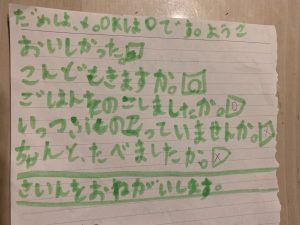 だめは、×。OKは○です。よう
おいしかった。
こんどもきますか。○
ごはんをのこしましたか。○
いっつぶものこっていませんか。×
ちゃんと、たべましたか。×
さいんをおねがいします。